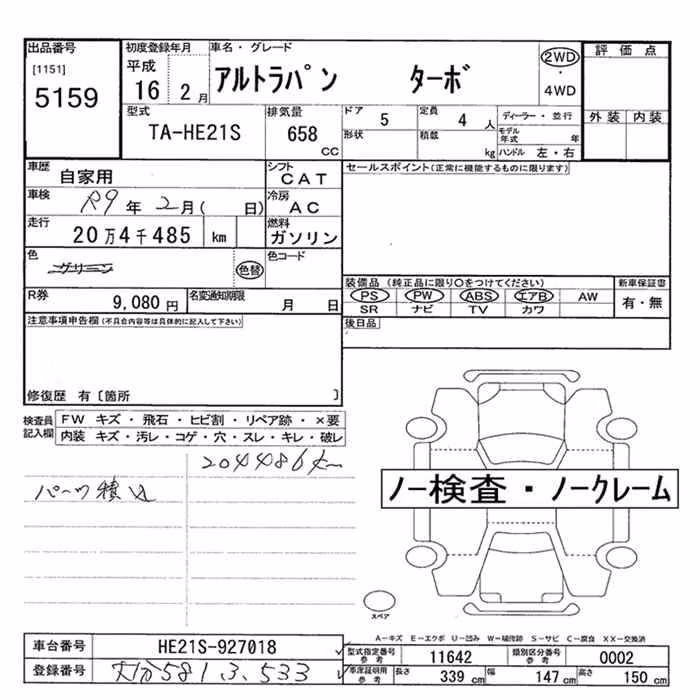 出品番号
[1151]
5159
初度登録年月
平成
16 2月
車名・グレード
アルトラパン ターボ
2WD
・
4WD
評価点
外装 内装
型式
TA-HE21S
排気量
658
CC
ドア 5
定員 4 人
ディーラー・並行
形状
積載 kg
モデル年式 年
ハンドル 左・右
車歴 自家用
シフト CAT
セールスポイント(正常に機能するものに限ります)
車検 R9年 2月( 日)
冷房 AC
走行 20万4千485 km
燃料 ガソリン
色 グリーン 色替
色コード
装備品 (純正品に限り○をつけてください)
新車保証書
PS PW ABS エアB AW
有・無
SR ナビ TV カワ
R券 9,080円
名変通知期限 月 日
後日品
注意事項申告欄(不具合内容等は具体的に記入して下さい)
修復歴 有〔箇所 〕
検査員
記入欄
FW キズ・飛石・ヒビ割・リペア跡・×要
内装 キズ・汚レ・コゲ・穴・スレ・キレ・破レ
204486km
パーツ積込
ノー検査・ノークレーム
スペア
A－キズ E－エクボ U－凹み W－補修跡 S－サビ C－腐食 XX－交換済
車台番号 HE21S-927018
型式指定番号
参考
11642
類別区分番号
参考
0002
登録番号 大分581 ス 533
車庫証明用
参考
長さ 339 cm 幅 147 cm 高さ 150 cm